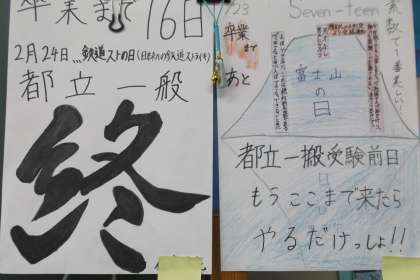 卒業まで16日
2月24日…鉄道ストの日(日本初の鉄道ストライキ)
都立一般
終
23
Seven-teen
卒業まで
あと
素数で1番美しい!
富士山の日
都立一搬受験前日
もうここまで来たら
やるだけっしょ!!